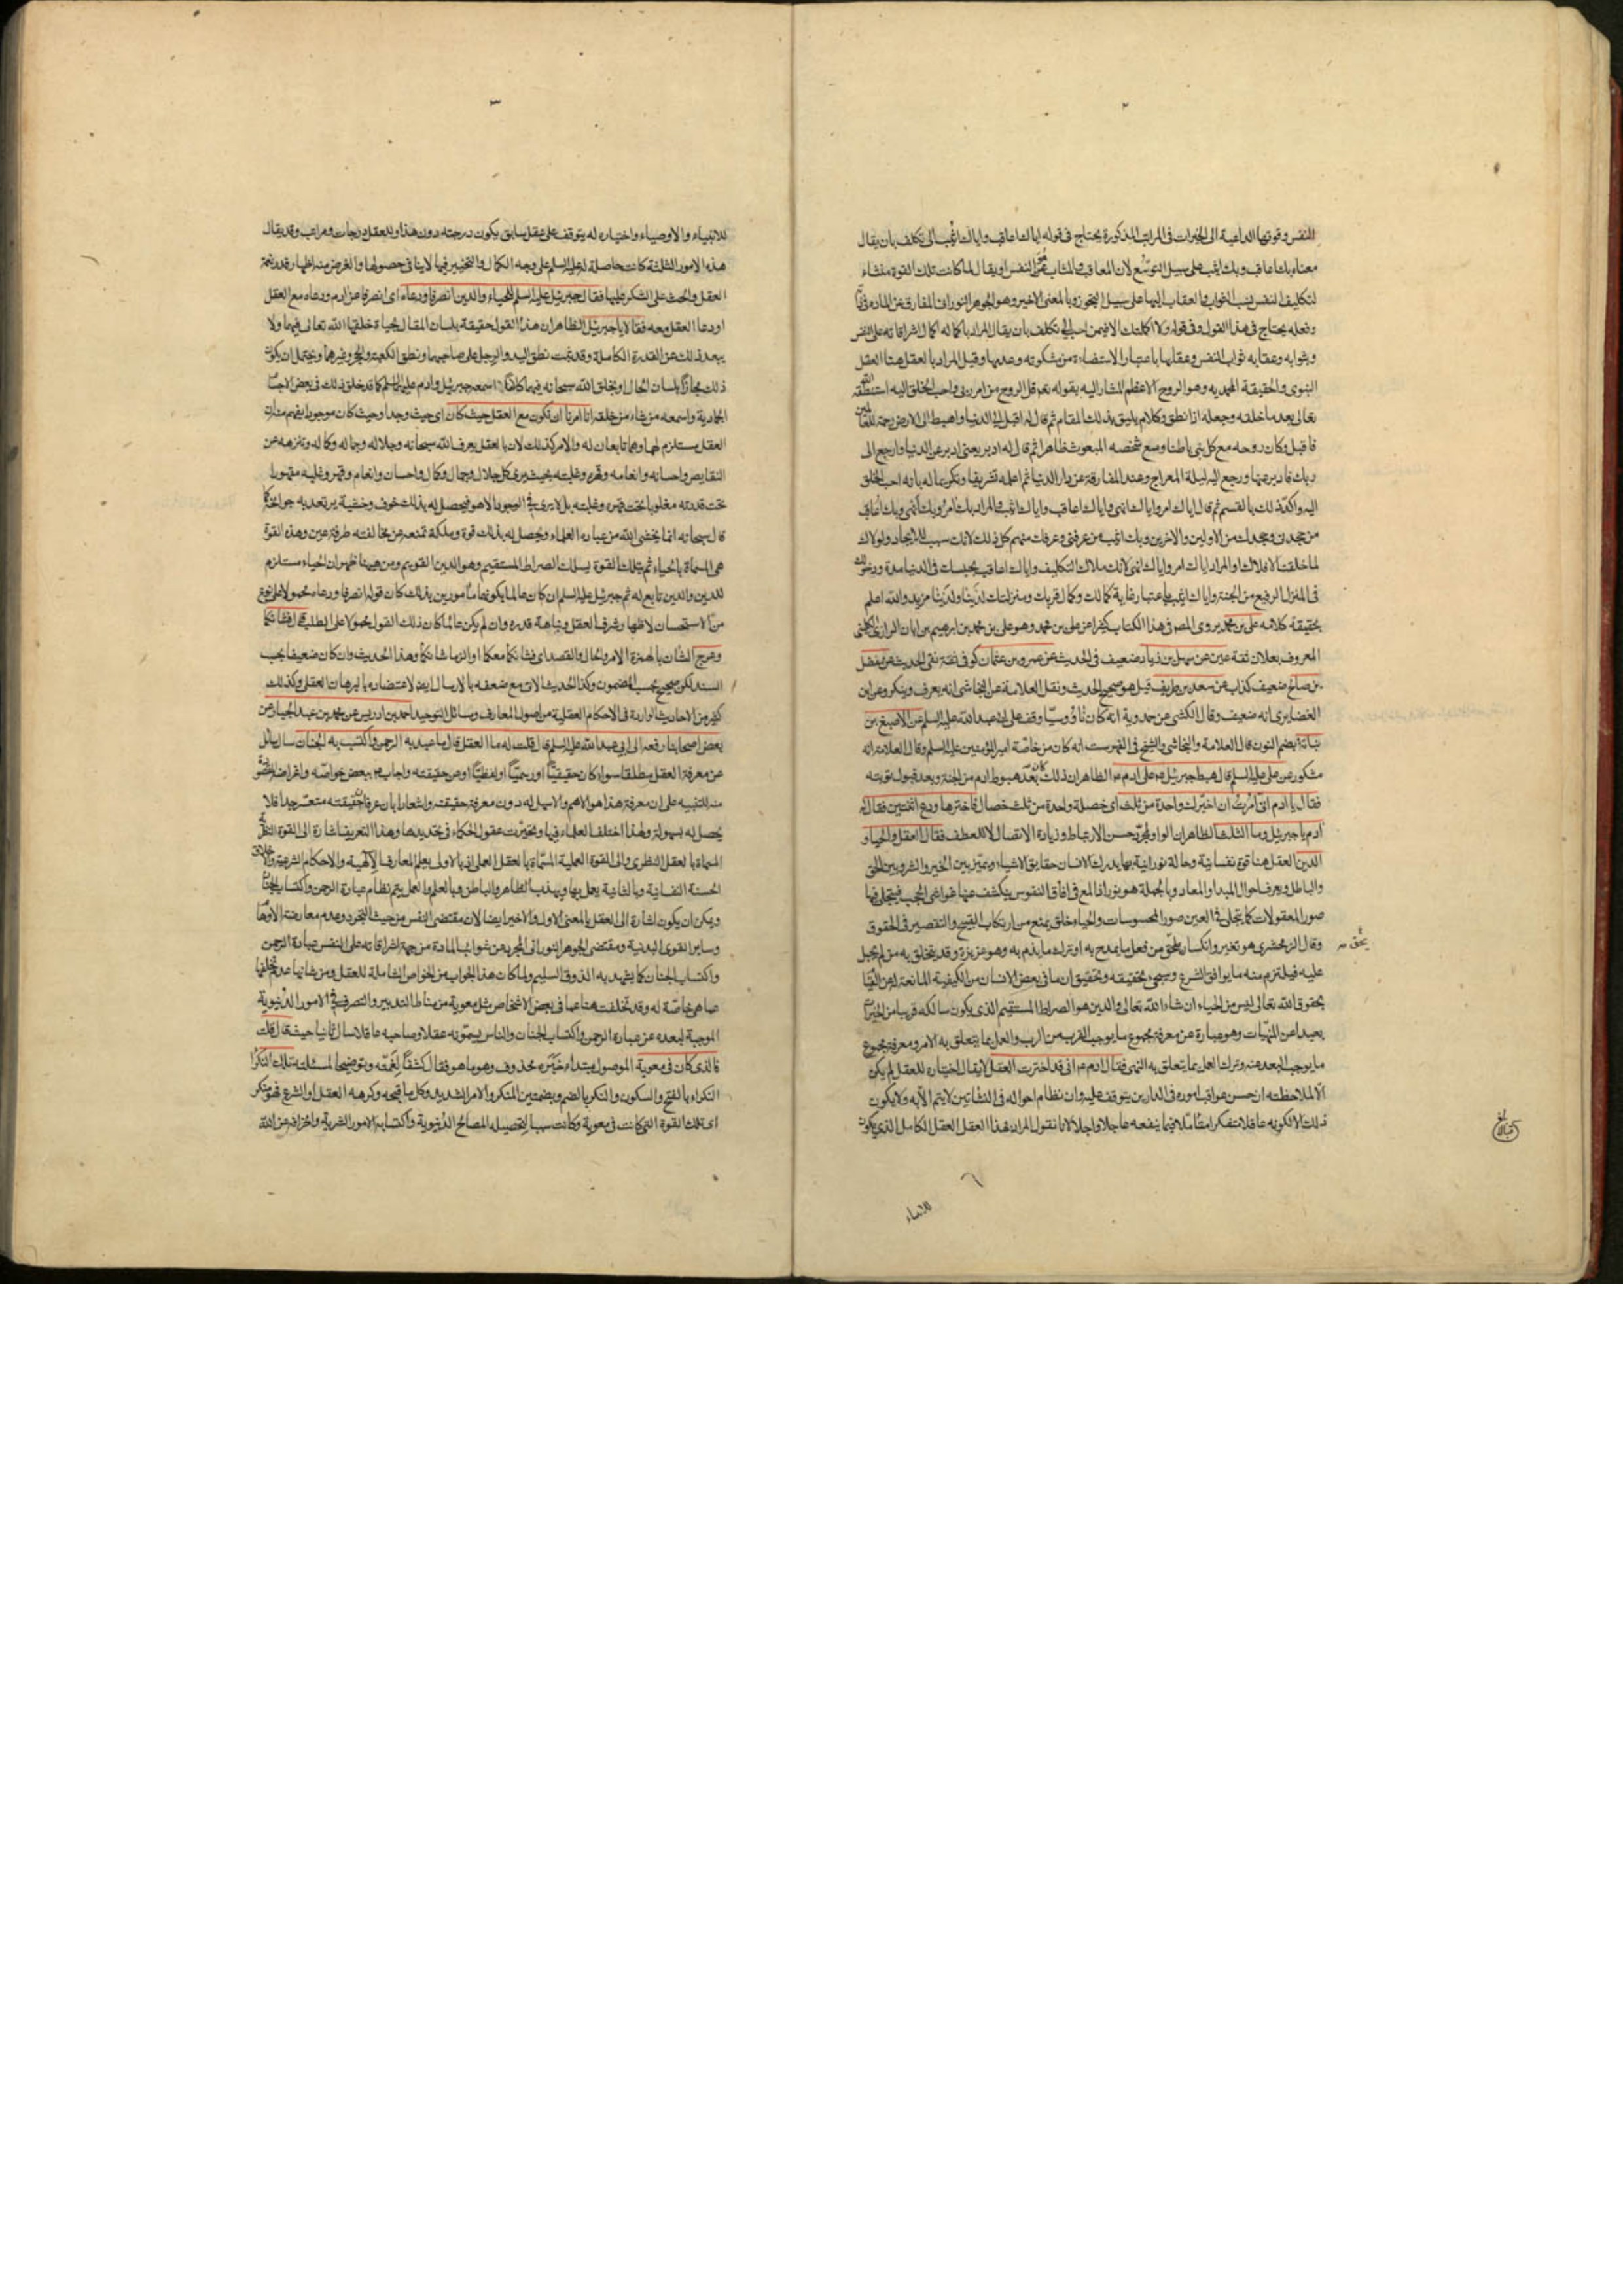 ٢
النفس وقوتها الداعية الى الخيرات فى المراتب المذكورة يحتاج فى قوله اياك اعاقب واياك اثيب الى تكلف بان يقال
معناه بك اعاقب وبك اثيب على سبيل التوسّع لان المعاقب والمثاب هو النفس او يقال لما كانت تلك القوة منشاء
لتكليف النفس نسب الثواب والعقاب اليها على سبيل التجوز وبالمعنى الاخير وهو الجوهر النورانى المفارق عن المادة فى ذاته
وفعله يحتاج فى هذا القول وفى قوله ولا اكملتك الا فيمن احب الى تكلف بان يقال المراد باكماله اكمال اشراقاته على النفس
وبثوابه وعقابه ثواب النفس وعقابها باعتبار الاستضاءة من مشكوته وعدمها وقيل المراد بالعقل هنا العقل
النبوى والحقيقة المحمدية وهو الروح الاعظم المشار اليه بقوله تعه قل الروح من امر ربى واحب الخلق اليه استنطقه الله
تعالى بعد ما خلقه وجعله ذا نطق وكلام يليق بذلك المقام ثم قال له اقبل الى الدنيا واهبط الى الارض رحمة للعالمين
فاقبل وكان روحه مع كل نبى باطنا ومع شخصه المبعوث ظاهرا ثم قال له ادبر يعنى ادبر عن الدنيا وارجع الى
ربك فادبر عنها ورجع اليه ليلة المعراج وعند المفارقة عن دار الدنيا ثم اعلمه تشريفا وتكريما له بانه احب الخلق
اليه واكد ذلك بالقسم ثم قال اياك امر واياك انهى واياك اعاقب واياك اثيب والمراد بك امر وبك انهى وبك اعاقب
من جحدنى وجحدك من الاولين والاخرين وبك اثيب من عرفنى وعرفك منهم كل ذلك لانك سبب للايجاد ولولاك
لما خلقت الافلاك والمراد اياك امر واياك انهى لانك ملاك التكليف واياك اعاقب بحبسك فى الدنيا مدة ودخولك
فى المنزل الرفيع من الجنة واياك اثيب باعتبار غاية كمالك وكمال قربك ومنزلتك لدينا ولدينا مزيد والله اعلم
بحقيقة كلامه على بن محمد يروى المص فى هذا الكتاب كثيرا عن على بن محمد وهو على بن محمد بن ابرهيم بن ابان الرازى الكلينى
المعروف بعلان ثقة عين عن سهل بن زياد ضعيف فى الحديث عن عمرو بن عثمان كوفى ثقة نقى الحديث عن مفضل
بن صالح ضعيف كذاب عن سعد بن طريف قيل هو صحيح الحديث ونقل العلامة عن النجاشى انه يعرف وينكر وعن ابن
الغضايرى انه ضعيف وقال الكشى عن حمدوية انه كان ناووسيا وقف على ابى عبد الله عليه السلم عن الاصبغ بن
نباتة بضم النون قال العلامة والنجاشى والشيخ فى الفهرست انه كان من خاصّة امير المؤمنين عليه السلم وقال العلامة انه
مشكور عن على عليه السلم قال هبط جبرئيل ع على ادم ع الظاهر ان ذلك كان بعد هبوط ادم من الجنة وبعد قبول توبته
فقال يا ادم انى امرت ان اخيّرك واحدة من ثلث اى خصلة واحدة من ثلث خصال فاخترها ودع اثنتين فقال له
ادم يا جبرئيل وما الثلث الظاهر ان الواو لمجرّد حسن الارتباط وزيادة الاتصال لا للعطف فقال العقل والحياء و
الدين العقل هنا قوة نفسانية وحالة نورانية بها يدرك الانسان حقايق الاشياء ويميز بين الخير والشر وبين الحق
والباطل ويعرف احوال المبدا والمعاد وبالجملة هو نور اذا لمع فى افاق النفوس ينكشف عنها غواشى الحجب فيتجلى فيها
صور المعقولات كما يتجلى فى العين صور المحسوسات والحياء خلق يمنع من ارتكاب القبيح والتقصير فى الحقوق
وقال الزمخشرى هو تغير وانكسار يلحق من فعل ما يمدح به او ترك ما يذم به وهو غريزة وقد يتخلق به من لم يجبل
عليه فيلتزم منه ما يوافق الشرع وسيجىء تحقيقه وتحقيق ان ما فى بعض الانسان من الكيفية المانعة له عن القيام
بحقوق الله تعالى ليس من الحياء ان شاء الله تعالى والدين هو الصراط المستقيم الذى يكون سالكه قريبا من الخيرات
بعيدا عن المنهيات وهو عبارة عن معرفة مجموع ما يوجب القرب من الرب والعمل بما يتعلق به الامر ومعرفة مجموع
ما يوجب البعد عنه وترك العمل بما يتعلق به النهى فقال ادم ع انى قد اخترت العقل لا يقال اختياره للعقل لم يكن
الّا لملاحظته ان حسن عواقب اموره فى الدارين يتوقف عليه وان نظام احواله فى النشاتين لا يتم الّا به ولا يكون
ذلك الا لكونه عاقلا متفكرا متأملا فيما ينفعه عاجلا واجلا لانا نقول المراد بهذا العقل العقل الكامل الذى يكون
للانبياء
٣
للانبياء والاوصياء واختياره له يتوقف على عقل سابق يكون درجته دون هذا وللعقل درجات ومراتب وقد يقال
هذه الامور الثلثة كانت حاصلة له عليه السلم على وجه الكمال والتخيير فيها لا ينافى حصولها والغرض منه اظهار قدر نعمة
العقل والحث على الشكر عليها فقال جبرئيل عليه السلم للحياء والدين انصرفا ودعاه اى انصرفا عن ادم ودعاه مع العقل
او دعا العقل معه فقالا يا جبرئيل الظاهر ان هذا القول حقيقة بلسان المقال بحياة خلقها الله تعالى فيهما ولا
يبعد ذلك عن القدرة الكاملة وقد ثبت نطق اليد والرجل على صاحبهما ونطق الكعبة والحجر وغيرهما ويحتمل ان يكون
ذلك مجازًا بلسان الحال او بخلق الله سبحانه فيهما كلامًا اسمعه جبرئيل وادم عليهما السلم كما قد خلق ذلك فى بعض الاجسام
الجمادية واسمعه من شاء من خلقه انا امرنا ان نكون مع العقل حيث كان اى حيث وجد او حيث كان موجودا يفهم منه ان
العقل مستلزم لهما وهما تابعان له والامر كذلك لان بالعقل يعرف الله سبحانه وجلاله وجماله وكماله وتنزهه عن
النقايص واحسانه وانعامه وقهره وغلبته بحيث يرى كل جلال وجمال وكمال واحسان وانعام وقهر وغلبه مقهورا
تحت قدرته مغلوبا تحت قهره وغلبته بل لا يرى فى الوجود الا هو فيحصل له بذلك خوف وخشية يرتعد به جوانحه كما
قال سبحانه انما يخشى الله من عباده العلماء ويحصل له بذلك قوة وملكة تمنعه عن مخالفته طرفة عين وهذه القوة
هى المسماة بالحياء ثم بتلك القوة يسلك الصراط المستقيم وهو الدين القويم ومن هيهنا ظهر ان الحياء مستلزم
للدين والدين تابع له ثم جبرئيل عليه السلم ان كان عالما بكونهما مأمورين بذلك كان قوله انصرفا ودعاه محمولا على نوع
من الاستحسان لاظهار شرف العقل ونباهة قدره وان لم يكن عالما كان ذلك القول محمولا على الطلب قال فشانكما
وعرج الشان بالهمزة الامر والحال والقصد اى فشانكما معكما او الزما شانكما وهذا الحديث وان كان ضعيفا بحسب
السند لكن صحيح بحسب المضمون وكذا الحديث الآتى مع ضعفه بالارسال ايضا لاعتضاده بالبرهان العقلى وكذلك
كثير من الاحاديث الواردة فى الاحكام العقلية من اصول المعارف ومسائل التوحيد احمد بن ادريس عن محمد بن عبد الجبار عن
بعض اصحابنا رفعه الى ابى عبد الله عليه السلم قال قلت له ما العقل قال ما عبد به الرحمن واكتسب به الجنان سال سائل
عن معرفة العقل مطلقا سواء كان حقيقيًّا او رسميًّا او لفظيًّا او عن حقيقته واجاب ع ببعض خواصّه واغراضه المقصودة
منه للتنبيه على ان معرفة هذا هو الاهم والاسهل له دون معرفة حقيقته واشعارا بان عرفان حقيقته متعسّر جدا فلا
يحصل له بسهولة ولهذا اختلف العلماء فيها وتحيّرت عقول الحكماء فى تحديدها وهذا التعريف اشارة الى القوة النظرية
المسماة بالعقل النظرى والى القوة العملية المسمّاة بالعقل العملى اذ بالاولى يعلم المعارف الالهية والاحكام الشرعية والاخلاق
الحسنة النفسانية وبالثانية يعمل بها ويهذب الظاهر والباطن وبالعلم والعمل يتم نظام عبادة الرحمن واكتساب الجنان
ويمكن ان يكون اشارة الى العقل بالمعنى الاول والاخير ايضا لان مقتضى النفس من حيث التجرد وعدم معارضة الاوهام
وساير القوى البدنية ومقتضى الجوهر النورانى المجرد عن شوائب المادة من جهة اشراقاته على النفس عبادة الرحمن
واكتساب الجنان كما يشهد به الذوق السليم ولما كان هذا الجواب من الخواص الشاملة للعقل ومن شانها عدم تخلفها
عما هى خاصّة له وقد تخلفت هنا عما فى بعض الاشخاص مثل معوية من مناط التدبير والتصرف فى الامور الدنيوية
الموجبة لبعده عن عبادة الرحمن واكتساب الجنان والناس يسمّونه عقلا وصاحبه عاقلا سال ثانيا حيث قال قلت
فالذى كان فى معوية الموصول مبتداء خبره محذوف وهو ما هو فقال كشفًا لغمّته وتوضيحا لمسئلته تلك النكراء
النكراء بالفتح والسكون والنكر بالضم وبضمتين المنكر والامر الشديد وكل ما قبحه وكرهه العقل او الشرع فهو منكر
اى تلك القوة التى كانت فى معوية وكانت سببا لتحصيله المصالح الدنيوية واكتسابه الامور الشرية وانحرافه عن الله